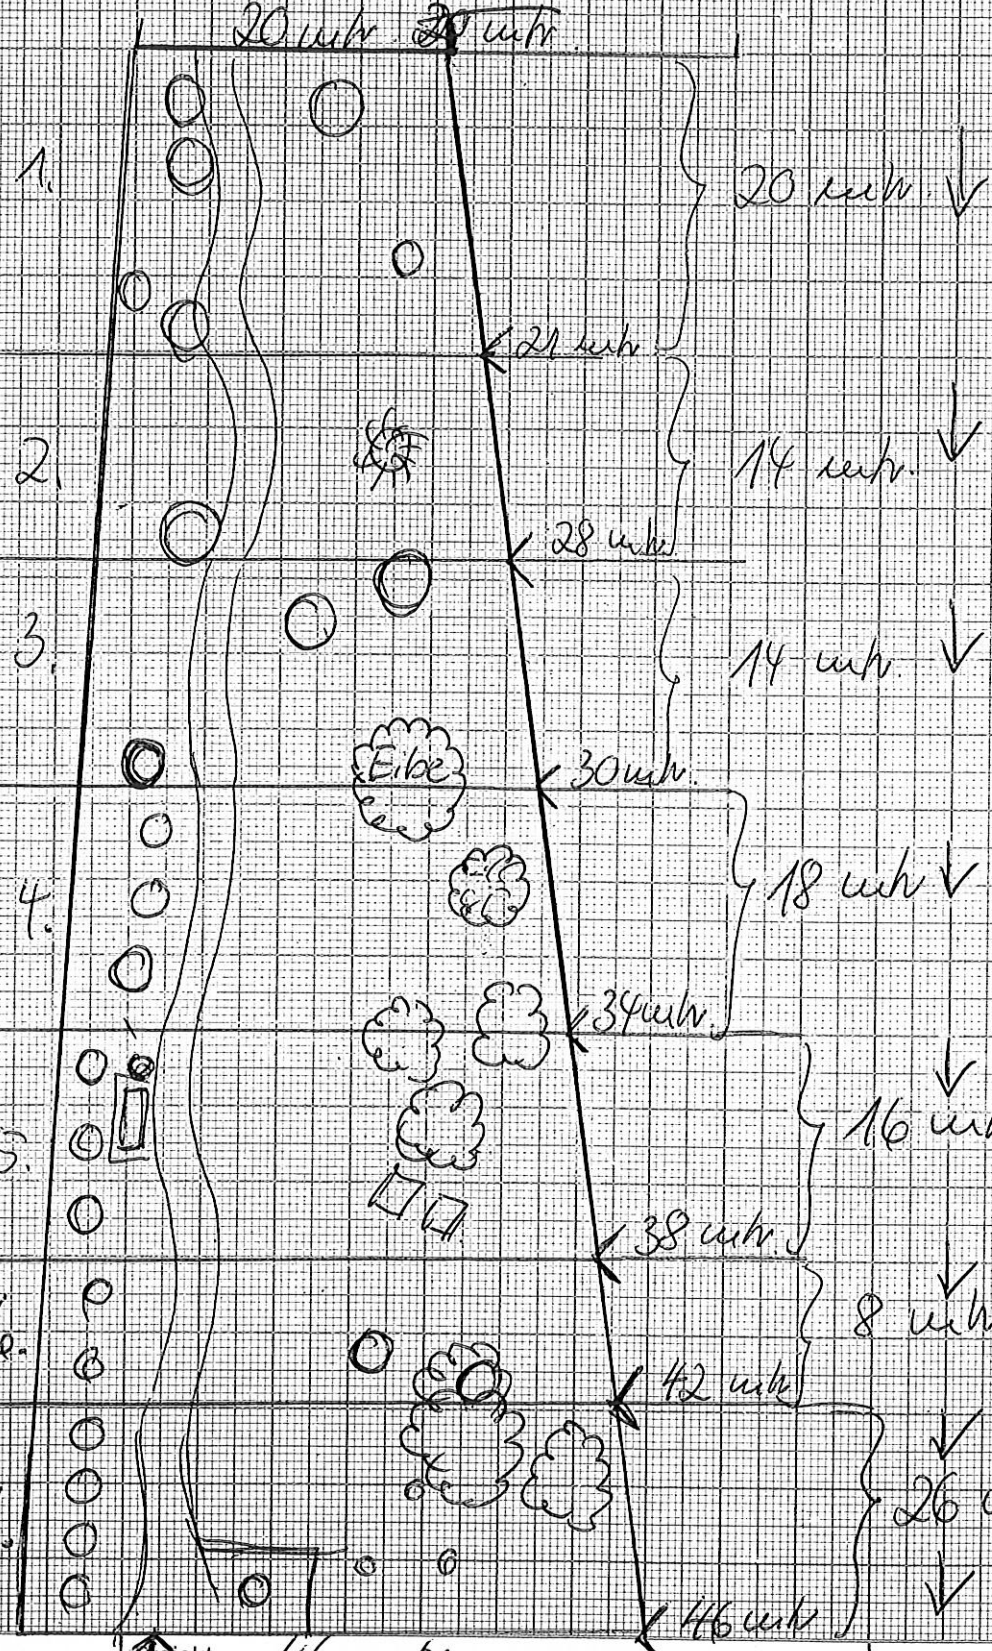 20 mtr.
1.
20 mtr.
21 mtr.
2.
14 mtr.
28 mtr.
3.
14 mtr.
Eibe
30 mtr.
4.
18 mtr
34 mtr.
16 m
38 mtr.
8 mtr
42 mtr
26
46 mtr